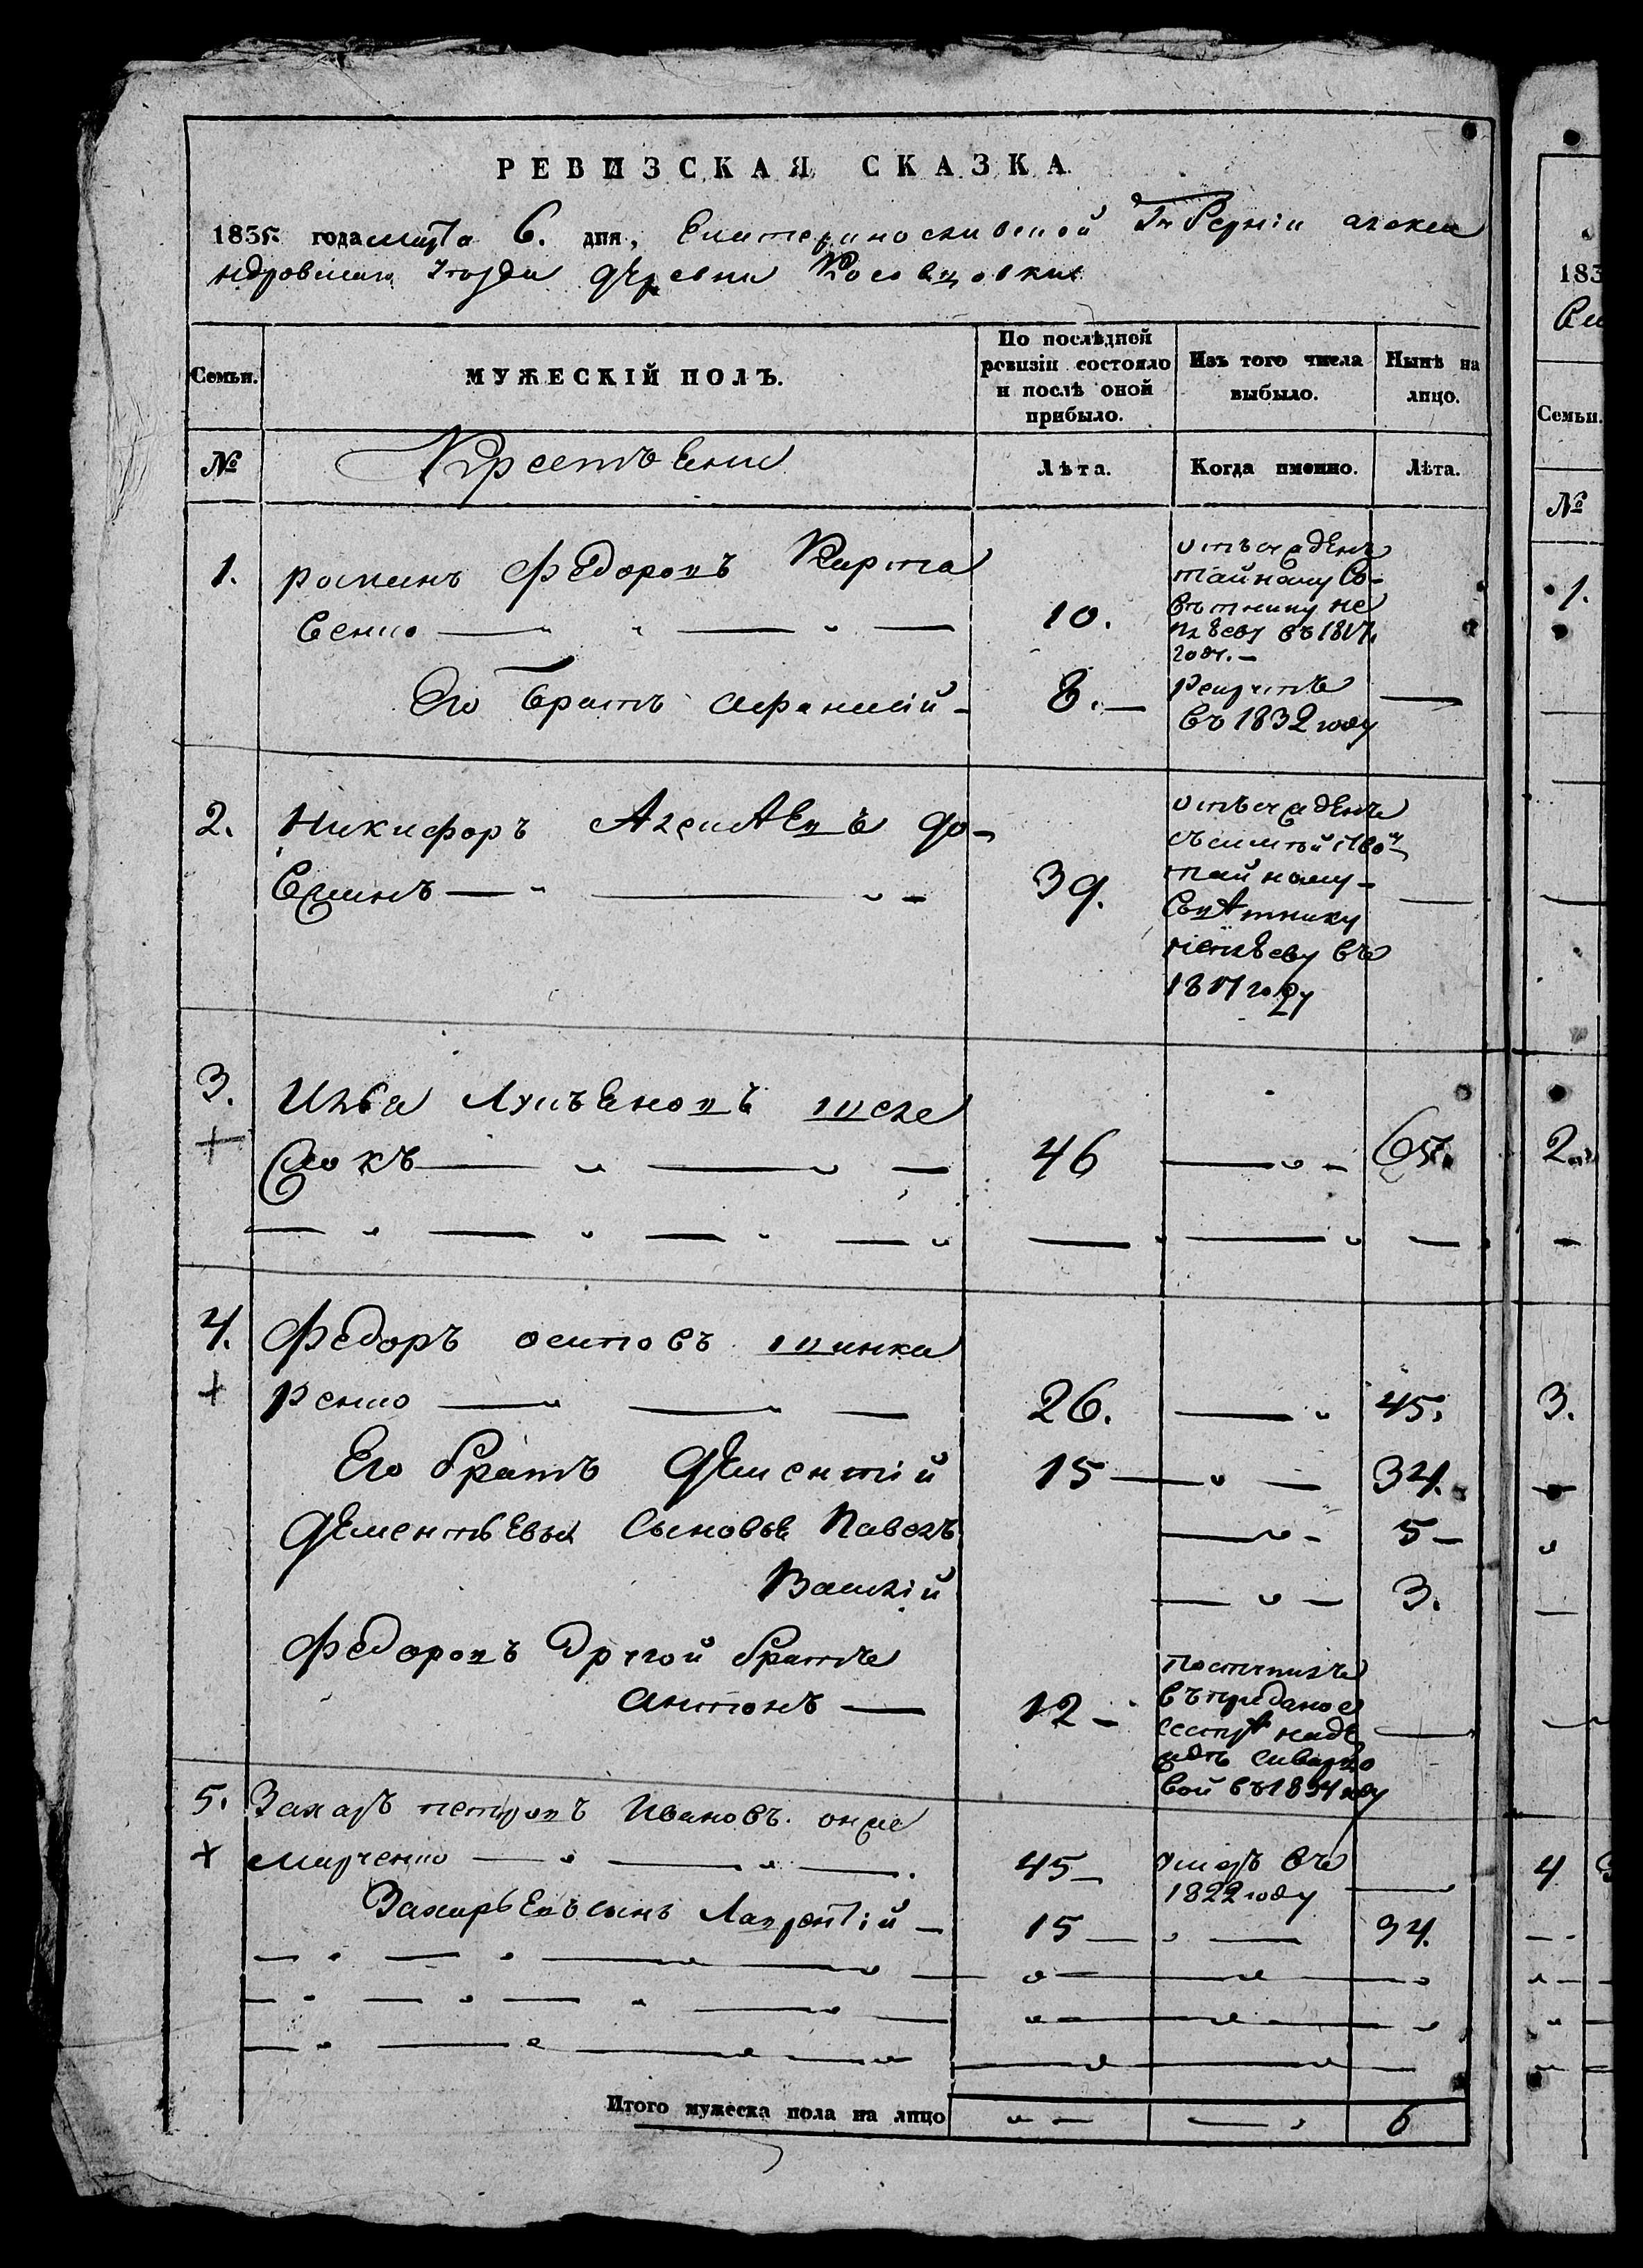 РЕВИЗСКАЯ СКАЗКА
1835 года марта 6. дня, Екатеринославской Губерніи алекса
ндровскаго уѣзда деревни
Семьи.
МУЖЕСКІЙ ПОЛЪ.
По послѣдней ревизіи состояло и послѣ оной прибыло.
Изъ того числа выбыло.
Нынѣ на лицо.
№
Крестьяне
Лѣта.
Когда именно.
Лѣта.
1. романъ Федоровъ Карта
венко 10. отъсужденъ тайному Совѣтнику въ 1817 году.
Его братъ афанасій 8. Рекрутъ въ 1832 году
2. Никифоръ до
39. отъсужденъ тайному Совѣтнику въ 1817 году
3. Илья
46 65.
4. Федоръ осиповъ шинка
ренко 26. 45.
Его братъ Дементій 15 34.
Дементьевы Сыновья Павелъ 5
Василій 3.
Федоровъ другой братъ
антонъ 12 поступилъ въ приданое сестрѣ
5. Захаръ петровъ Ивановъ онже
марченко 45 умеръ въ 1822 году
Захарьевъ сынъ Лаврентій 15 34.
Итого мужеска пола на лицо 6
183
Семьи.
№
1.
2.
3.
4